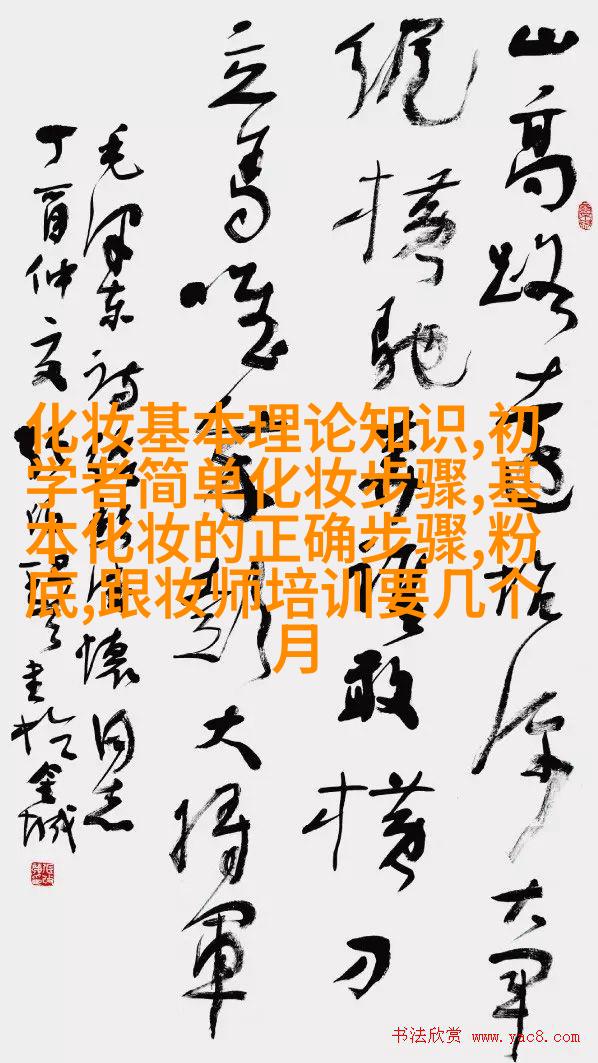 山高路遠坑深大军
纵横驰奔谁敢横刀
立马唯我彭大将軍
毛泽东诗给彭德懷同志
丁酉仲夏書於金城
化妆基本理论知识,初
学者简单化妆步骤,基
本化妆的正确步骤,粉
底,跟妆师培训要几个
月
书法欣赏 www.yac8.com